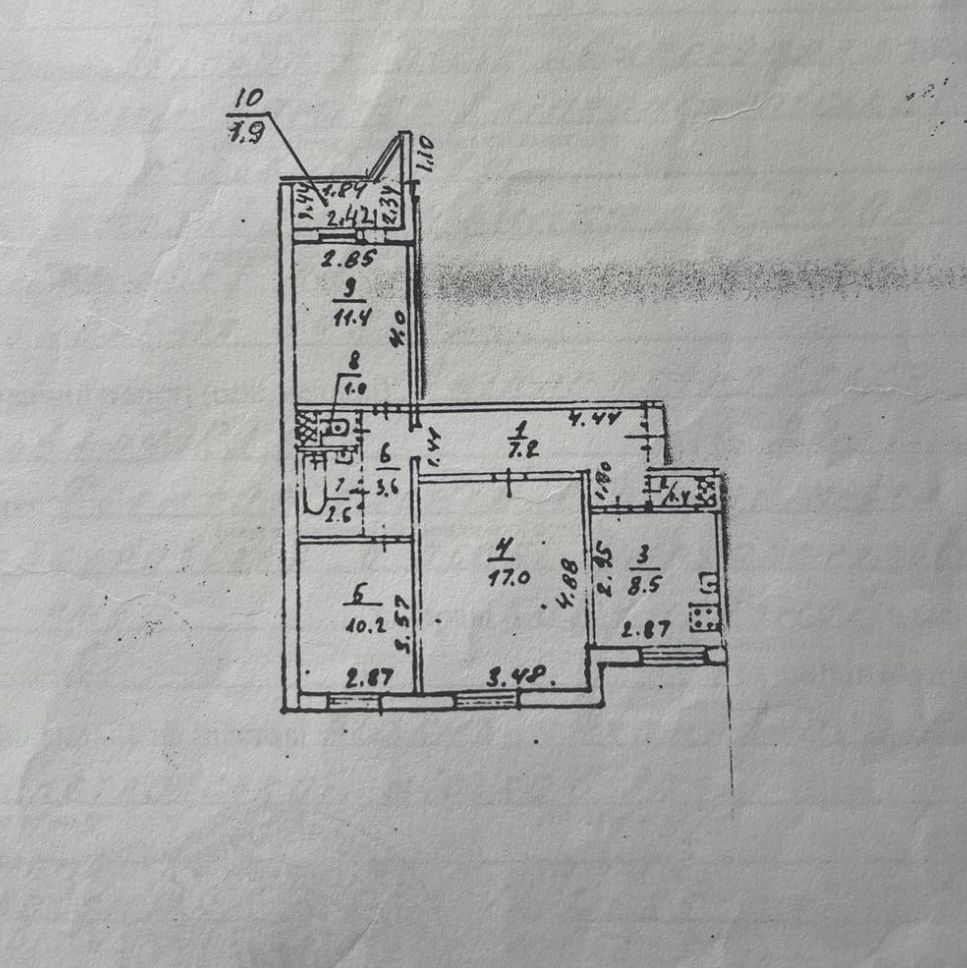 10
1.9
1.10
1.84
2.42
2.34
2.85
9
11.4
4.0
8
1.0
4.44
1
7.2
1.44
6
3.6
1.80
7
2.6
4
17.0
4.88
2.95
3
8.5
2.87
5
10.2
3.57
2.87
3.48